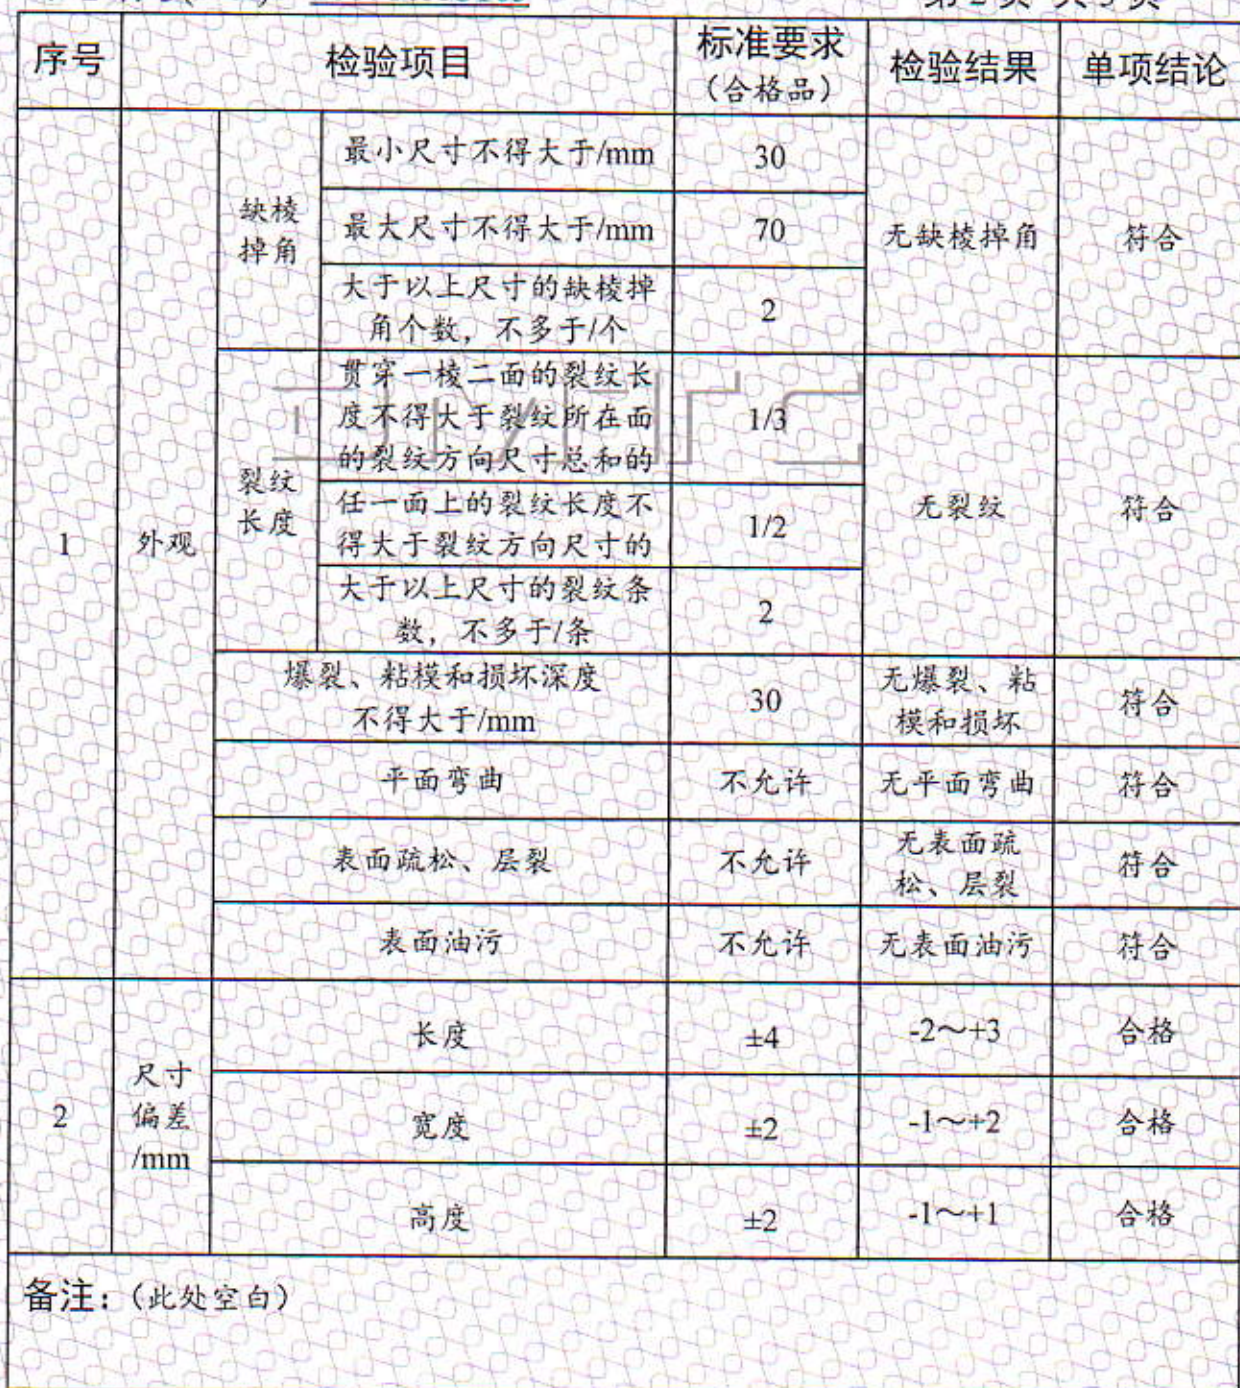 第 2 页 共 3 页
序号 检验项目 标准要求 检验结果 单项结论
（合格品）
1 外观 缺棱
掉角
最小尺寸不得大于/mm 30
最大尺寸不得大于/mm 70
大于以上尺寸的缺棱掉
角个数，不多于/个 2
无缺棱掉角 符合
裂纹
长度
贯穿一棱二面的裂纹长
度不得大于裂纹所在面
的裂纹方向尺寸总和的 1/3
任一面上的裂纹长度不
得大于裂纹方向尺寸的 1/2
大于以上尺寸的裂纹条
数，不多于/条 2
无裂纹 符合
爆裂、粘模和损坏深度
不得大于/mm 30
无爆裂、粘
模和损坏 符合
平面弯曲 不允许 无平面弯曲 符合
表面疏松、层裂 不允许
无表面疏
松、层裂 符合
表面油污 不允许 无表面油污 符合
2 尺寸
偏差
/mm
长度 ±4 -2～+3 合格
宽度 ±2 -1～+2 合格
高度 ±2 -1～+1 合格
备注：（此处空白）